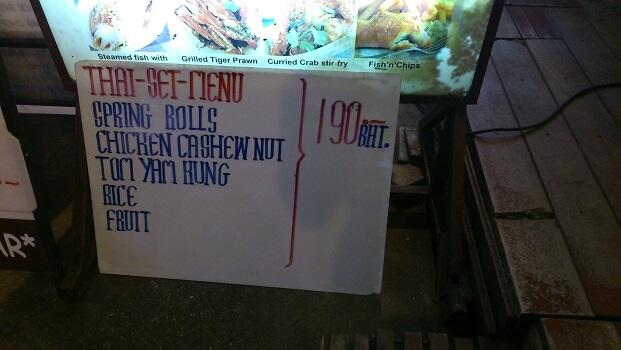 Steamed fish with
Grilled Tiger Prawn
Curried Crab stir-fry
Fish'n'Chips
THAI-SET-MENU
SPRING ROLLS
CHICKEN CASHEW NUT
TOM YAM KUNG
RICE
FRUIT
190 BHT.
AR*